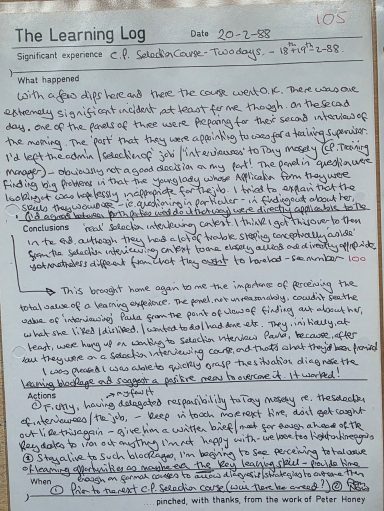 105
The Learning Log Date 20-2-88
Significant experience C.P. Selection Course - Two days, - 18th + 19th 2-88
What happened
With a few dips here and there the course went O.K. There was one
extremely significant incident, at least for me though. On the second
day, one of the panels of three were preparing for their second interview of
the morning. The post that they were appointing to was for a training supervisor.
I'd left the admin/selection of job/interviewees to Tony (C.P. Training
manager) - obviously not a good decision on my part! The panel in question were
finding big problems in that the young lady whose application form they were
looking at was hopelessly inappropriate for the job. I tried to explain that the
skills they would use - ie questioning in particular - in finding out about her,
were directly applicable to the
Conclusions real selection interviewing context. I think I got this over to them
in the end although they had a lot of trouble
from the selection interviewing context to one closely allied and directly
yet nonetheless different from what they ought to have had - see number 100
This brought home again to me the importance of perceiving the
total value of a learning experience. The panel, not unreasonably, couldn't see the
value of interviewing Paula from the point of view of finding out about her,
what she liked/disliked, wanted to do/had done etc. They, initially at
least, were hung up on wanting to selection interview Paula, because, after
all they were on a selection interviewing course and that's what they'd been promised
I was pleased I was able to quickly grasp the situation, diagnose the
learning blockage and suggest a positive means to overcome it. It worked!
Actions
① Firstly, having delegated responsibility to Tony re. the selection
of interviewees/the job - keep in touch more next time, don't get caught
out like this again - give him a written brief/meet far enough ahead of the
key dates to iron out anything I'm not happy with - we were too
② Stay alive to such blockages, I'm beginning to see perceiving the total value
of learning opportunities as maybe even the key learning skill - provide time
When though on formal courses to allow strategies to overcome them
① Prior to the next C.P. Selection Course (will there be one?) ② Now
...pinched, with thanks, from the work of Peter Honey